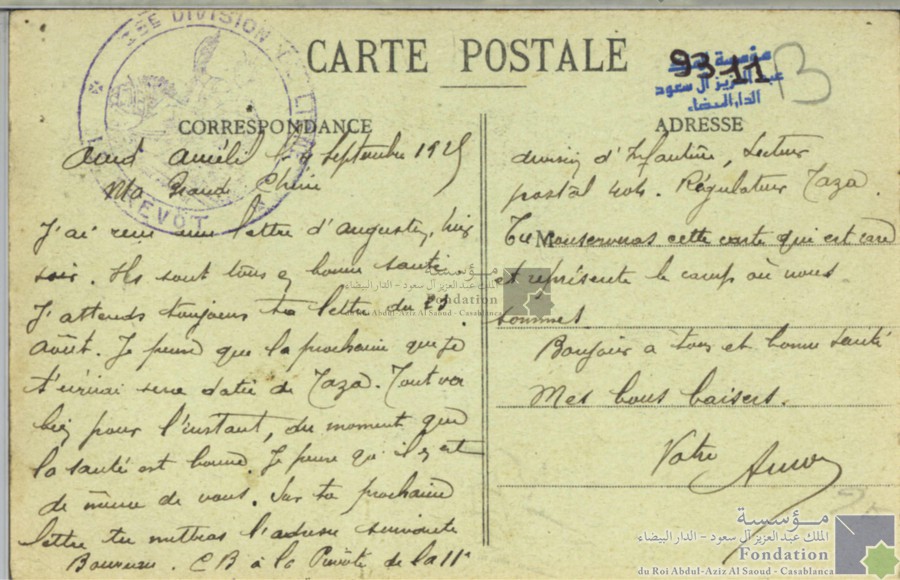 CARTE POSTALE
CORRESPONDANCE
ADRESSE
35E DIVISION
PREVÔT
مؤسسة الملك
عبد العزيز آل سعود
الدار البيضاء
93 11
B
Amélil le 9 Septembre 1925
Ma Grand Chérie
J'ai reçu une lettre d'Auguste, hier
soir. Ils sont tous en bonne santé
J'attends toujours ta lettre du 23
août. Je pense que la prochaine que je
t'écrirai sera datée de Taza. Tout va
bien pour l'instant, du moment que
la santé est bonne. Je pense qu'il en est
de même de vous. Sur ta prochaine
lettre tu mettras l'adresse suivante
CB à la Prévôté de la 11e
division d'Infanterie, Secteur
postal 404. Régulateur Taza.
M
Tu conserveras cette carte qui est rare
et représente le camp où nous
sommes.
Bonjour a tous et bonne santé
Mes bons baisers.
Votre
مؤسسة
الملك عبد العزيز آل سعود - الدار البيضاء
Fondation
du Roi Abdul-Aziz Al Saoud - Casablanca
مؤسسة
الملك عبد العزيز آل سعود - الدار البيضاء
Fondation
du Roi Abdul-Aziz Al Saoud - Casablanca